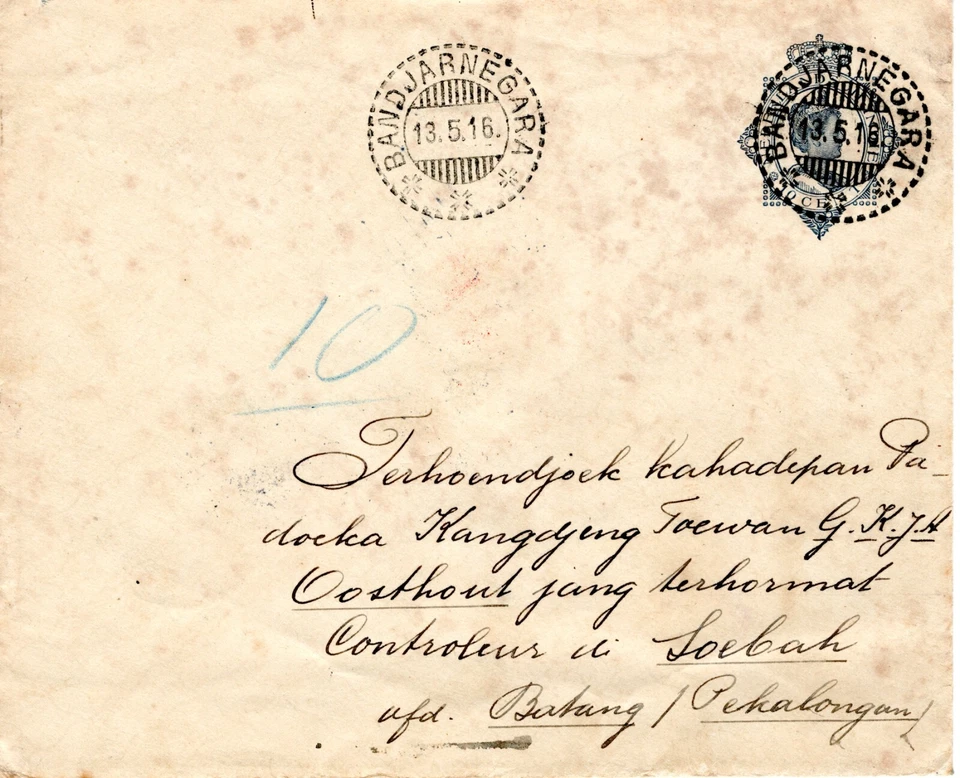 BANDJARNEGARA
13.5.16.
BANDJARNEGARA
13.5.16
10
Terhoendjoek kahadepan Pa-
doeka Kangdjeng Toewan G. K. J. A
Oosthout jang terhormat
Controleur di Soebah
afd. Batang / Pekalongan /